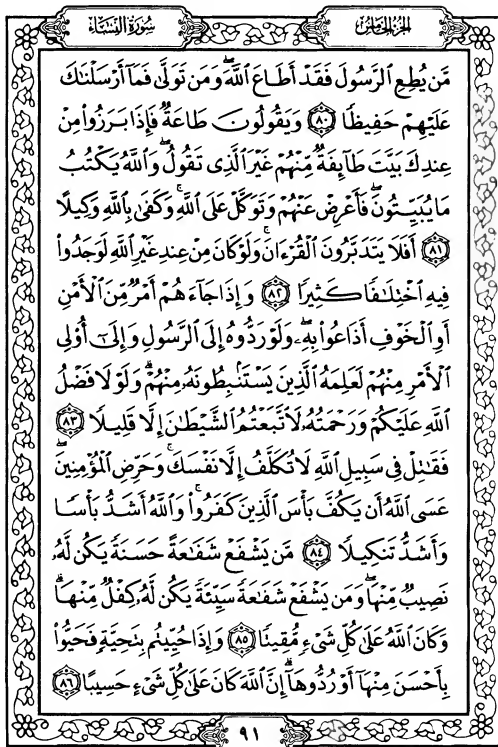 الجزء الخامس
سورة النساء
مَّن يُطِعِ ٱلرَّسُولَ فَقَدْ أَطَاعَ ٱللَّهَ ۖ وَمَن تَوَلَّىٰ فَمَآ أَرْسَلْنَٰكَ
عَلَيْهِمْ حَفِيظًا ٨٠ وَيَقُولُونَ طَاعَةٌ فَإِذَا بَرَزُوا۟ مِنْ
عِندِكَ بَيَّتَ طَآئِفَةٌ مِّنْهُمْ غَيْرَ ٱلَّذِى تَقُولُ ۖ وَٱللَّهُ يَكْتُبُ
مَا يُبَيِّتُونَ ۖ فَأَعْرِضْ عَنْهُمْ وَتَوَكَّلْ عَلَى ٱللَّهِ ۚ وَكَفَىٰ بِٱللَّهِ وَكِيلًا
٨١ أَفَلَا يَتَدَبَّرُونَ ٱلْقُرْءَانَ ۚ وَلَوْ كَانَ مِنْ عِندِ غَيْرِ ٱللَّهِ لَوَجَدُوا۟
فِيهِ ٱخْتِلَٰفًا كَثِيرًا ٨٢ وَإِذَا جَآءَهُمْ أَمْرٌ مِّنَ ٱلْأَمْنِ
أَوِ ٱلْخَوْفِ أَذَاعُوا۟ بِهِۦ ۖ وَلَوْ رَدُّوهُ إِلَى ٱلرَّسُولِ وَإِلَىٰٓ أُو۟لِى
ٱلْأَمْرِ مِنْهُمْ لَعَلِمَهُ ٱلَّذِينَ يَسْتَنۢبِطُونَهُۥ مِنْهُمْ ۗ وَلَوْلَا فَضْلُ
ٱللَّهِ عَلَيْكُمْ وَرَحْمَتُهُۥ لَٱتَّبَعْتُمُ ٱلشَّيْطَٰنَ إِلَّا قَلِيلًا ٨٣
فَقَٰتِلْ فِى سَبِيلِ ٱللَّهِ لَا تُكَلَّفُ إِلَّا نَفْسَكَ ۚ وَحَرِّضِ ٱلْمُؤْمِنِينَ ۖ
عَسَى ٱللَّهُ أَن يَكُفَّ بَأْسَ ٱلَّذِينَ كَفَرُوا۟ ۚ وَٱللَّهُ أَشَدُّ بَأْسًا
وَأَشَدُّ تَنكِيلًا ٨٤ مَّن يَشْفَعْ شَفَٰعَةً حَسَنَةً يَكُن لَّهُۥ
نَصِيبٌ مِّنْهَا ۖ وَمَن يَشْفَعْ شَفَٰعَةً سَيِّئَةً يَكُن لَّهُۥ كِفْلٌ مِّنْهَا ۗ
وَكَانَ ٱللَّهُ عَلَىٰ كُلِّ شَىْءٍ مُّقِيتًا ٨٥ وَإِذَا حُيِّيتُم بِتَحِيَّةٍ فَحَيُّوا۟
بِأَحْسَنَ مِنْهَآ أَوْ رُدُّوهَآ ۗ إِنَّ ٱللَّهَ كَانَ عَلَىٰ كُلِّ شَىْءٍ حَسِيبًا ٨٦
٩١